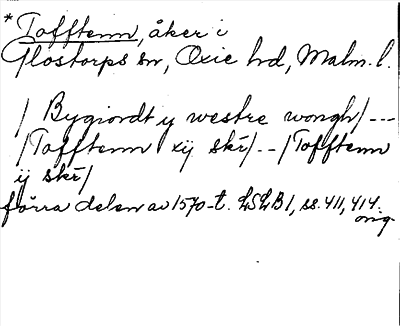 * Tofftenn, åker i
Glostorps sn, Oxie hd, Malm. l.
/ Bygiordt y westre wongh/ ---
/Tofftenn xij skr/ -- /Tofftenn
ij skr/
förra delen av 1570-t. LSLB 1, ss. 411, 414.
orig